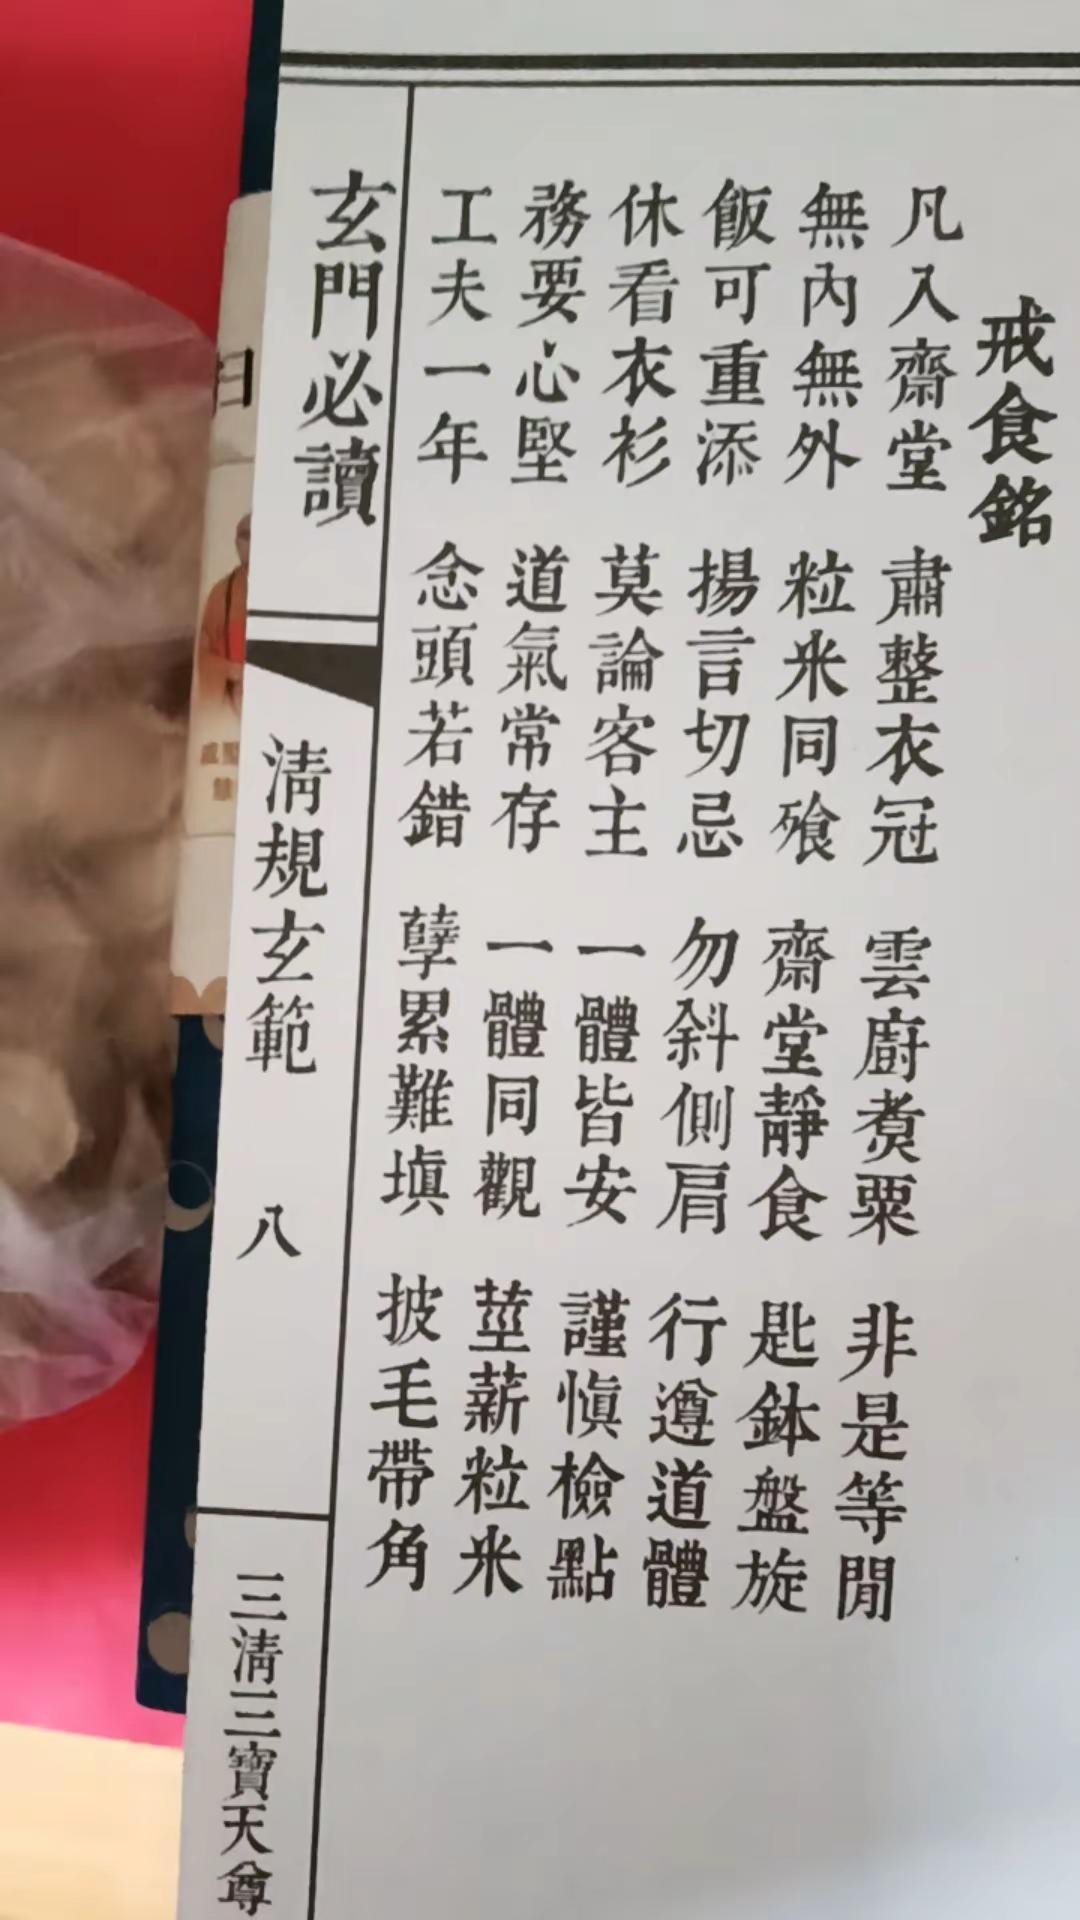 戒食銘
凡入齋堂 肅整衣冠 雲廚煑粟 非是等閒
無內無外 粒米同飱 齋堂靜食 匙鉢盤旋
飯可重添 揚言切忌 勿斜側肩 行遵道體
休看衣衫 莫論客主 一體皆安 謹愼檢點
務要心堅 道氣常存 一體同觀 莖薪粒米
工夫一年 念頭若錯 孽累難塡 披毛帶角
玄門必讀
清規玄範 八
三清三寶天尊
扫